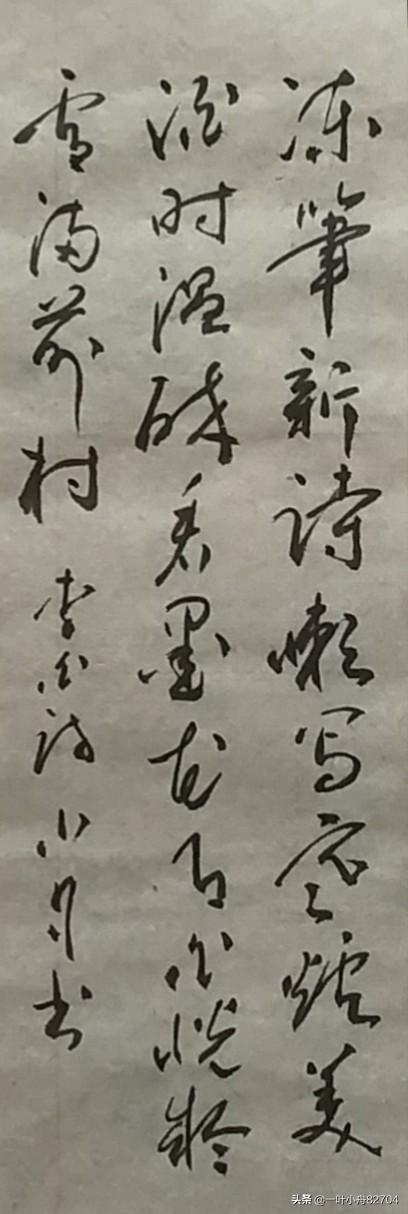 冻筆新诗懒写寒炉美
酒时温醉看墨花月白恍疑
雪满前村 李白诗 小舟书
头条 @一叶小舟82704